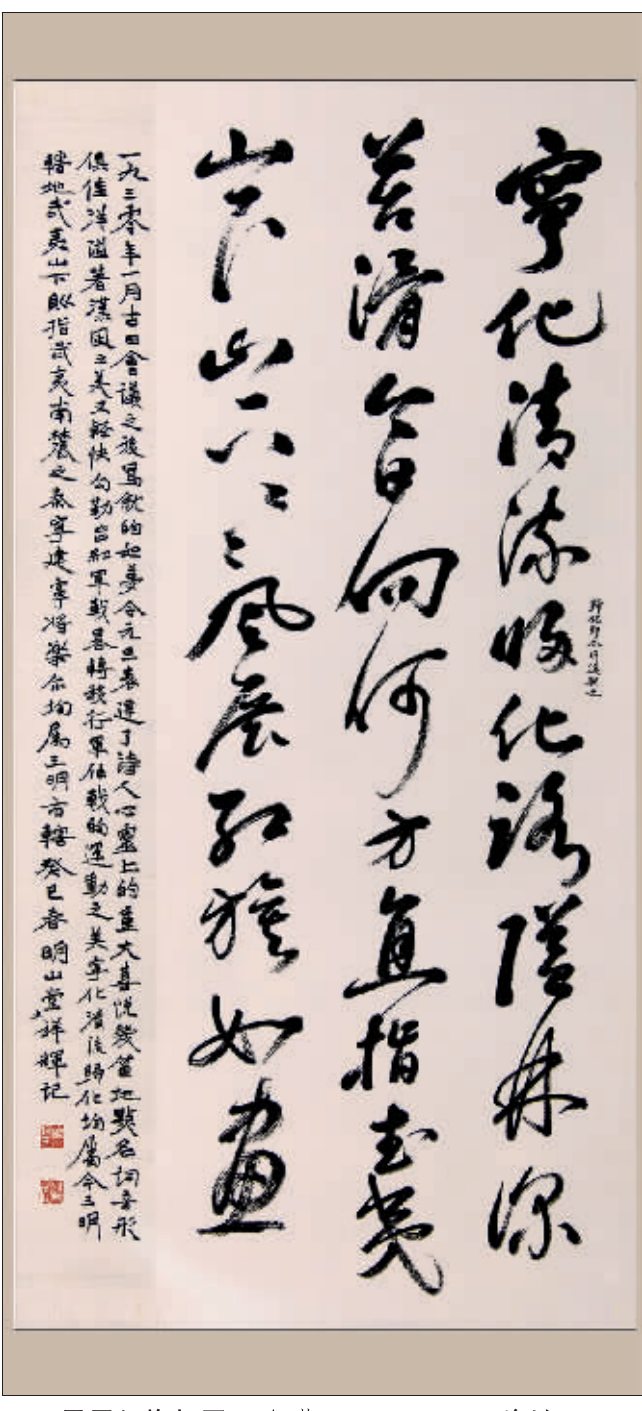 寧化清流归化路隘林深
苔滑今日向何方直指武夷
山下山下〻〻風展红旗如畫
歸化即今明溪縣也
一九三零年一月古田會議之後寫就的如夢令元旦表達了詩人心靈上的重大喜悅幾篇地點名詞音形
俱佳洋溢著漢風之美又輕快勾勒出紅軍戰略轉移行軍作戰的運動之美寧化清流歸化均屬今三明
轄地武夷山下則指武夷南麓之泰寧建寧將樂亦均屬三明市轄癸巳春明山堂祥輝記